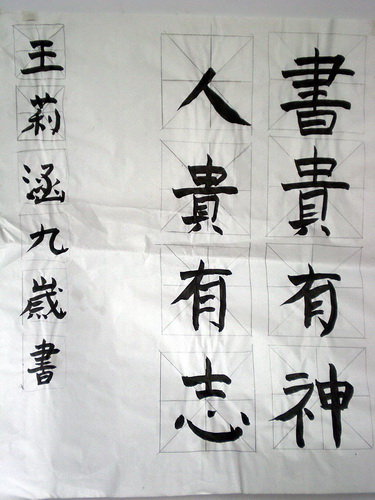 書貴有神
人貴有志
王莉涵九歲書